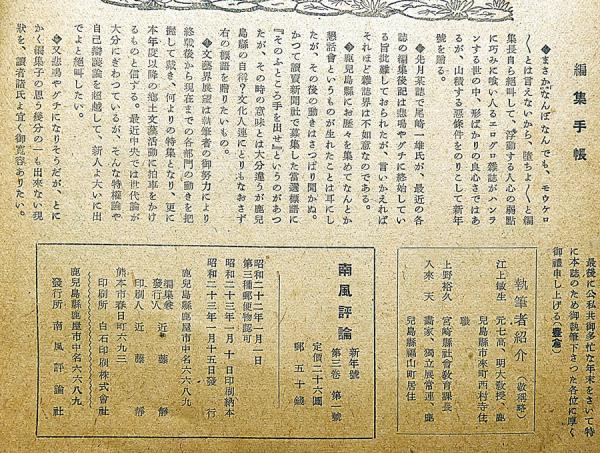 編集手帳
◆まさかなんぼなんでも、モウケロ
〳〵とは言えないから、堕ちよ〳〵と編
集長自ら絶叫して、浮動する人心の弱點
に巧みに喰い入るエログロ雜誌がハンラ
ンする世の中、形ばかりの良心さではあ
るが、山積する悪條件をのりこして新年
號を贈る。
◆先月某誌で尾崎一雄氏が、最近の各
誌の編集後記は悲鳴やグチに終始してい
る旨批難しておられたが、言いかえれば
それほど雜誌界は不如意なのである。
◆鹿兒島縣にお歴々を集めてなんとか
懇話會というものが生れたことは耳にし
たが、その後の動きはさつぱり聞かぬ。
かつて讀賣新聞社で募集した當選標語に
『そのふところ手を出せ』というのがあつ
たが、その時の意味とは大分違うが鹿兒
島縣の自稱？文化人連にとりもなおさず
この標語を贈りたいもの。
◆文藝界展望は執筆者の御努力により
終戰後から現在までの各部門の動きを把
握して戴き、何よりの特集となり、更に
本年度以降の郷土文藝活動に拍車をかけ
るものと信ずる。最近中央では世代論が
大分にぎわつているが、そんな特權論や
自己辯護論を超越して、新人よ大いに出
でよと絶叫したい。
◆又悲鳴やグチになりそうだが、とに
かく編集子の思う養分の一も出來ない現
狀を、讀者諸氏よ宜く御寬容ありたい。
最後に公私共御多忙な年末をさいて特
に本誌のため御執筆下さつた各位に厚く
御禮申し上げる（豊倉）
執筆者紹介（敬稱略）
江上敏生 元七高、明大教授、鹿
兒島縣市來町西村寺住
職
上野裕久 宮崎縣社會教育課長
入來 天 畵家、獨立展常連、鹿
兒島縣福山町居住
南風評論 新年號
第三卷 第一號
定價二十六圓
郵五十錢
昭和二十二年一月二日
第三種郵便物認可
昭和二十三年一月十日印刷納本
昭和二十三年一月十五日發行
鹿兒島縣鹿屋市中名六六八九
編集兼
發行人 近藤靜
印刷人 近藤靜
熊本市春日町六九三
印刷所 白石印刷株式會社
鹿兒島縣鹿屋市中名六六八九
發行所 南風評論社